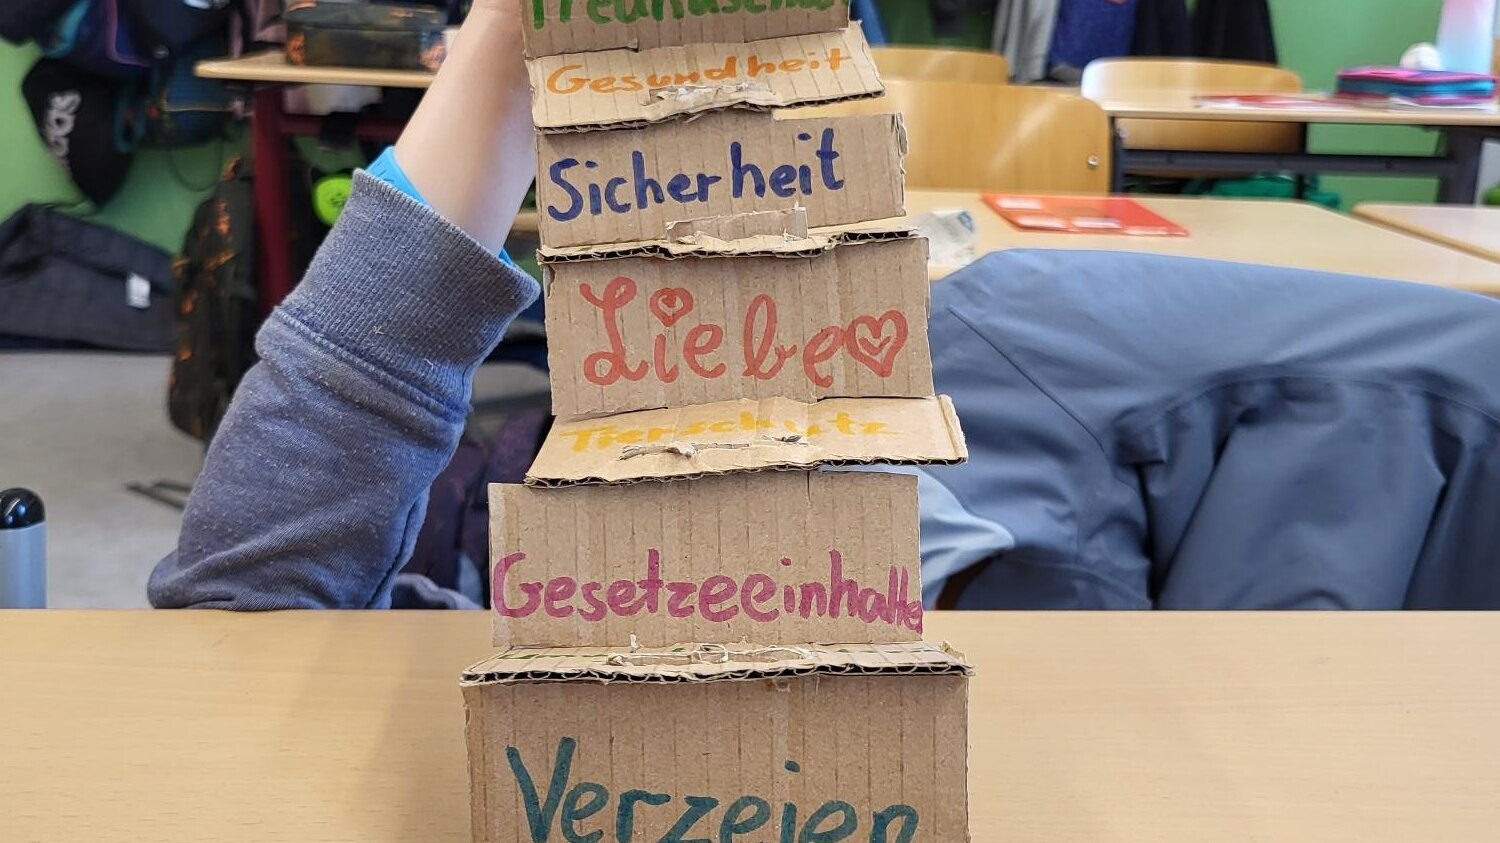 Freundschaft
Gesundheit
Sicherheit
Liebe
Tierschutz
Gesetzeeinhalten
Verzeien